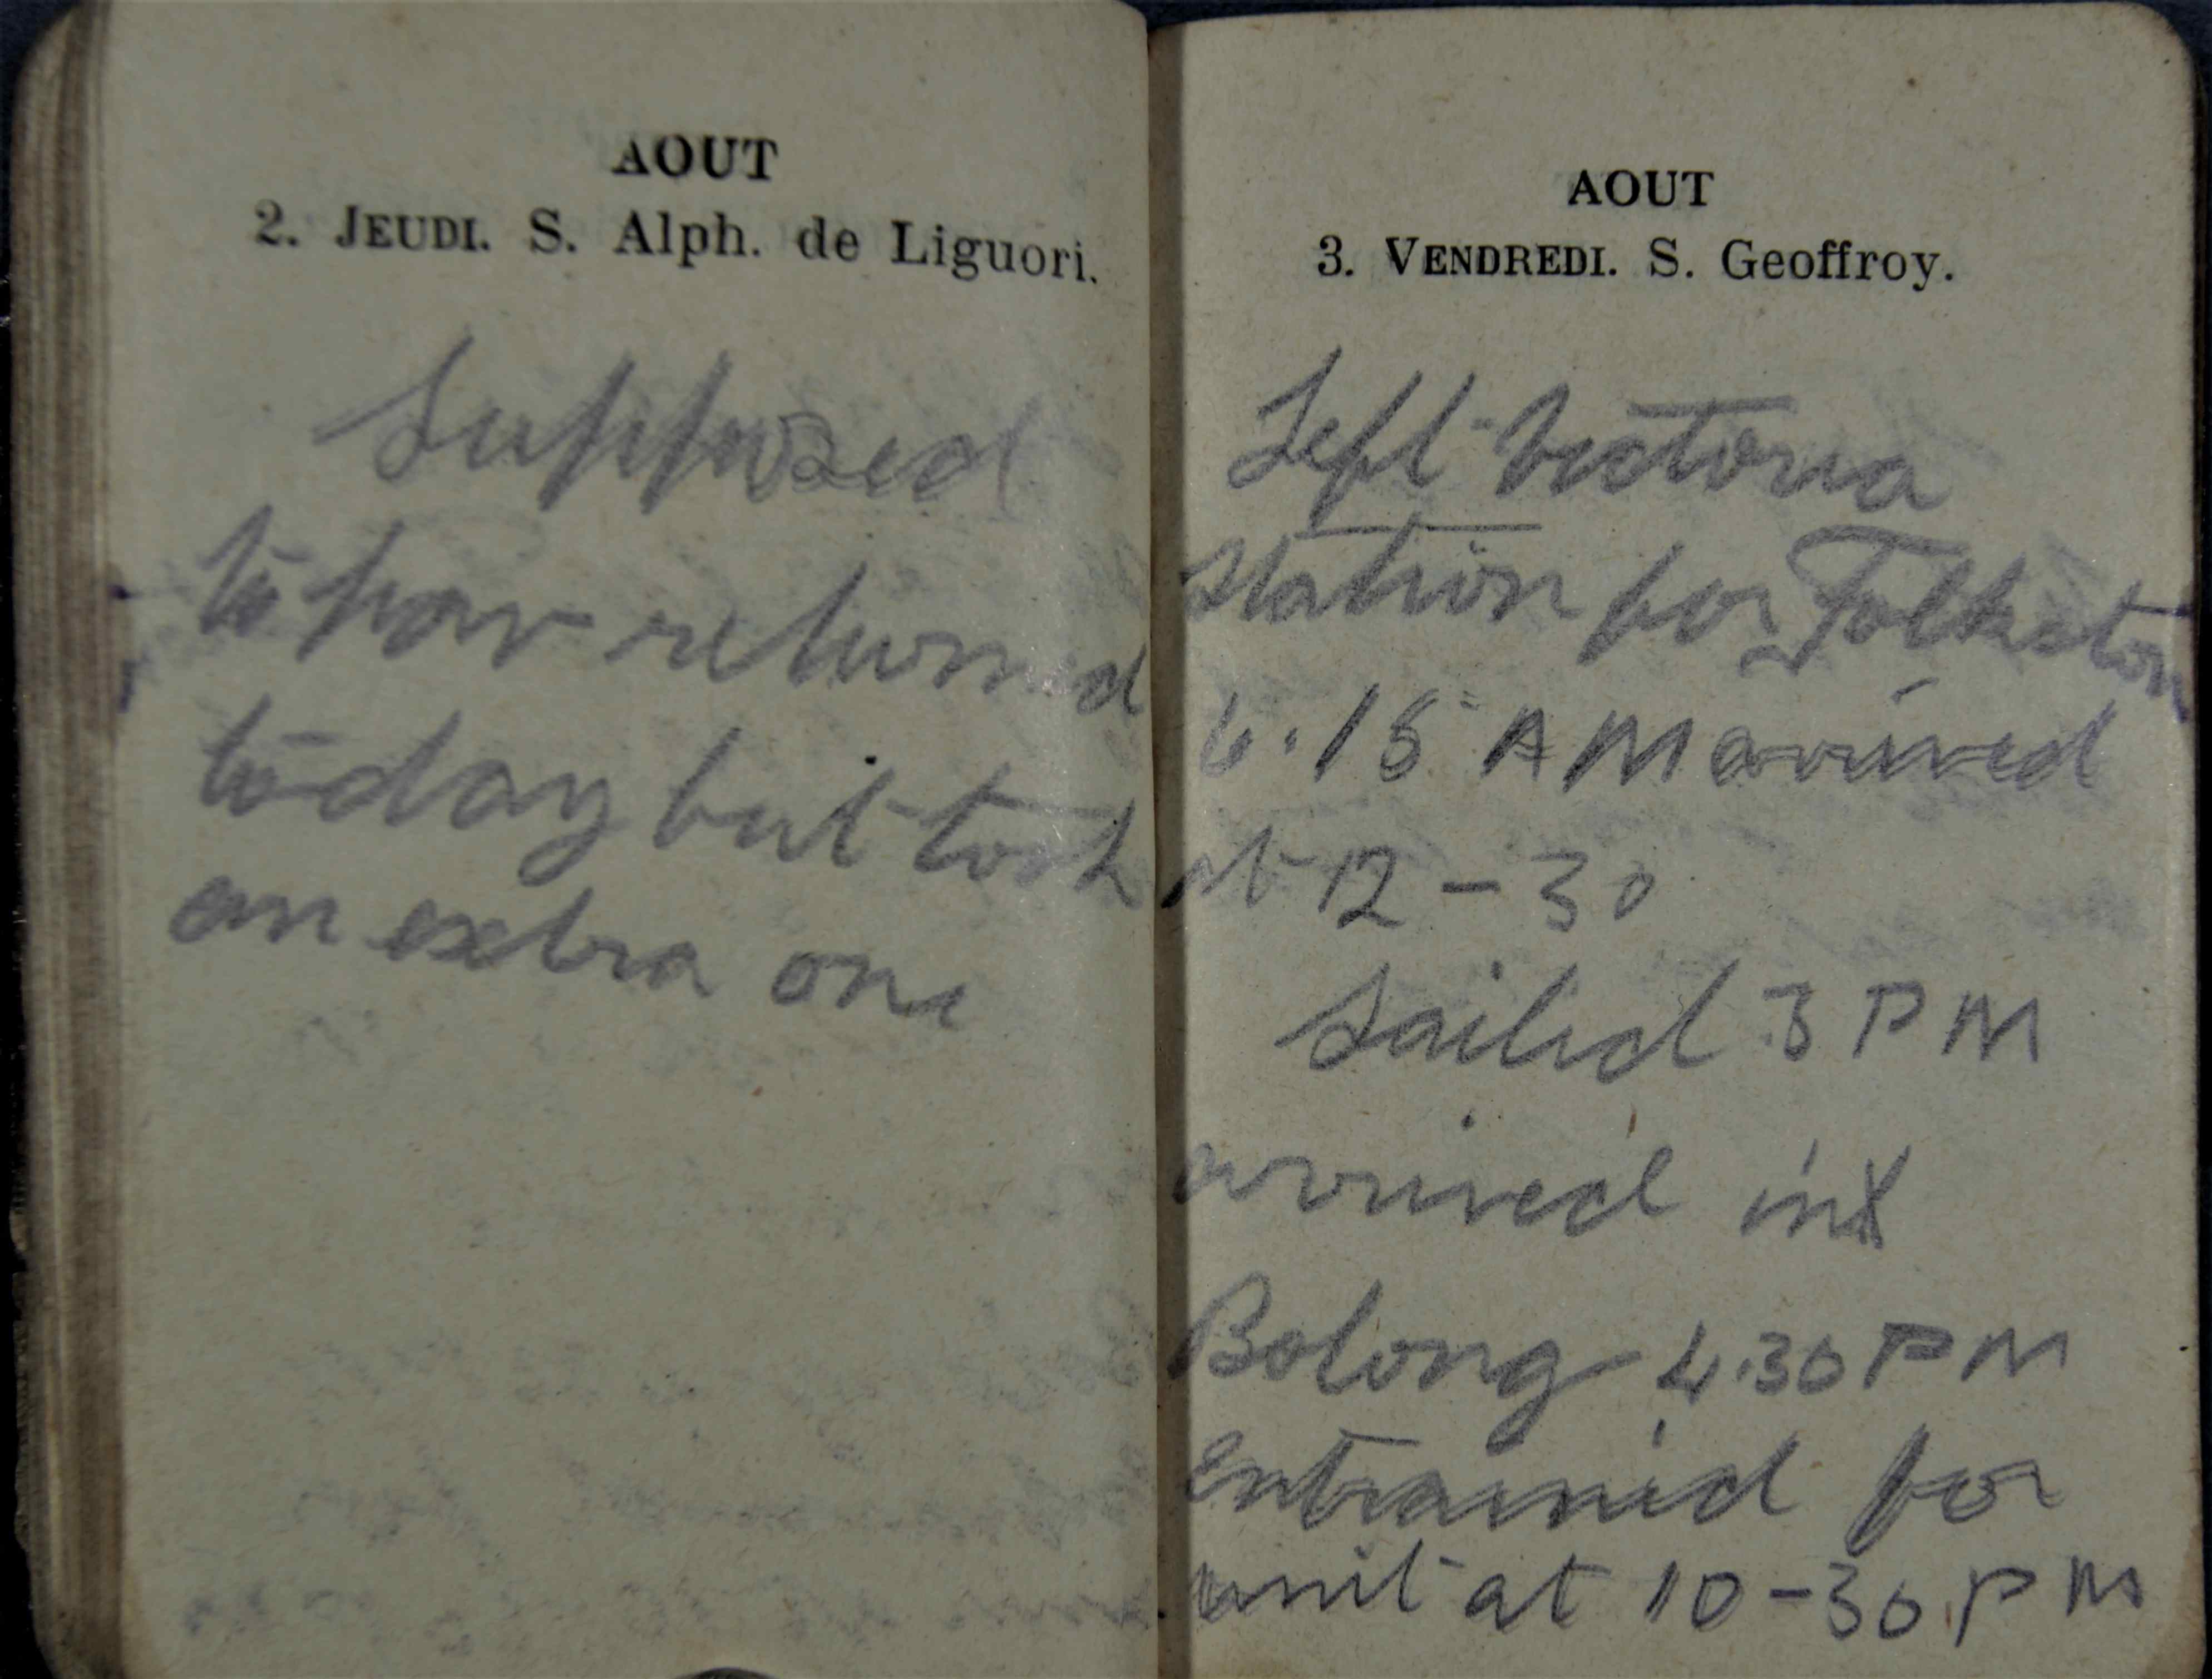 AOUT
2. JEUDI. S. Alph. de Liguori.
Supposed
to hav returned
today but took
an extra one
AOUT
3. VENDREDI. S. Geoffroy.
Left Victoria
station for Folkston
6.15 AM arrived
at 12 - 30
Sailed 3 PM
arrived in
Bolong 4.30 PM
Entrained for
unit at 10-30 PM